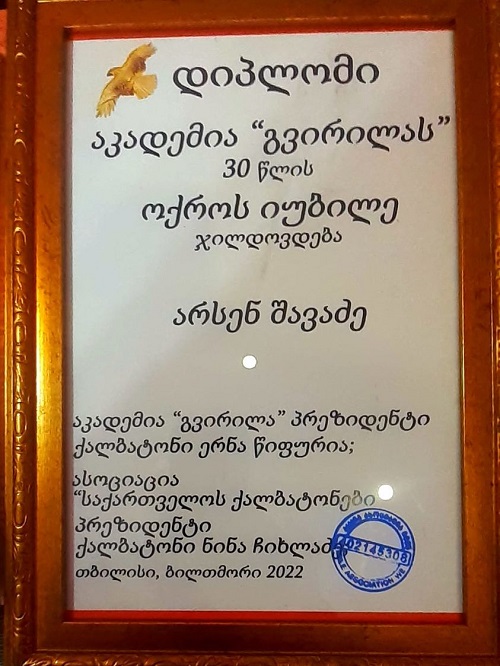 დიპლომი
აკადემია “გვირილას”
30 წლის
ოქროს იუბილე
ჯილდოვდება
არსენ შავაძე
აკადემია “გვირილა” პრეზიდენტი
ქალბატონი ერნა წიფურია;
ასოციაცია
“საქართველოს ქალბატონები
პრეზიდენტი
ქალბატონი ნინა
თბილისი, ბილთმორი 2022
402145308
ASSOCIATION